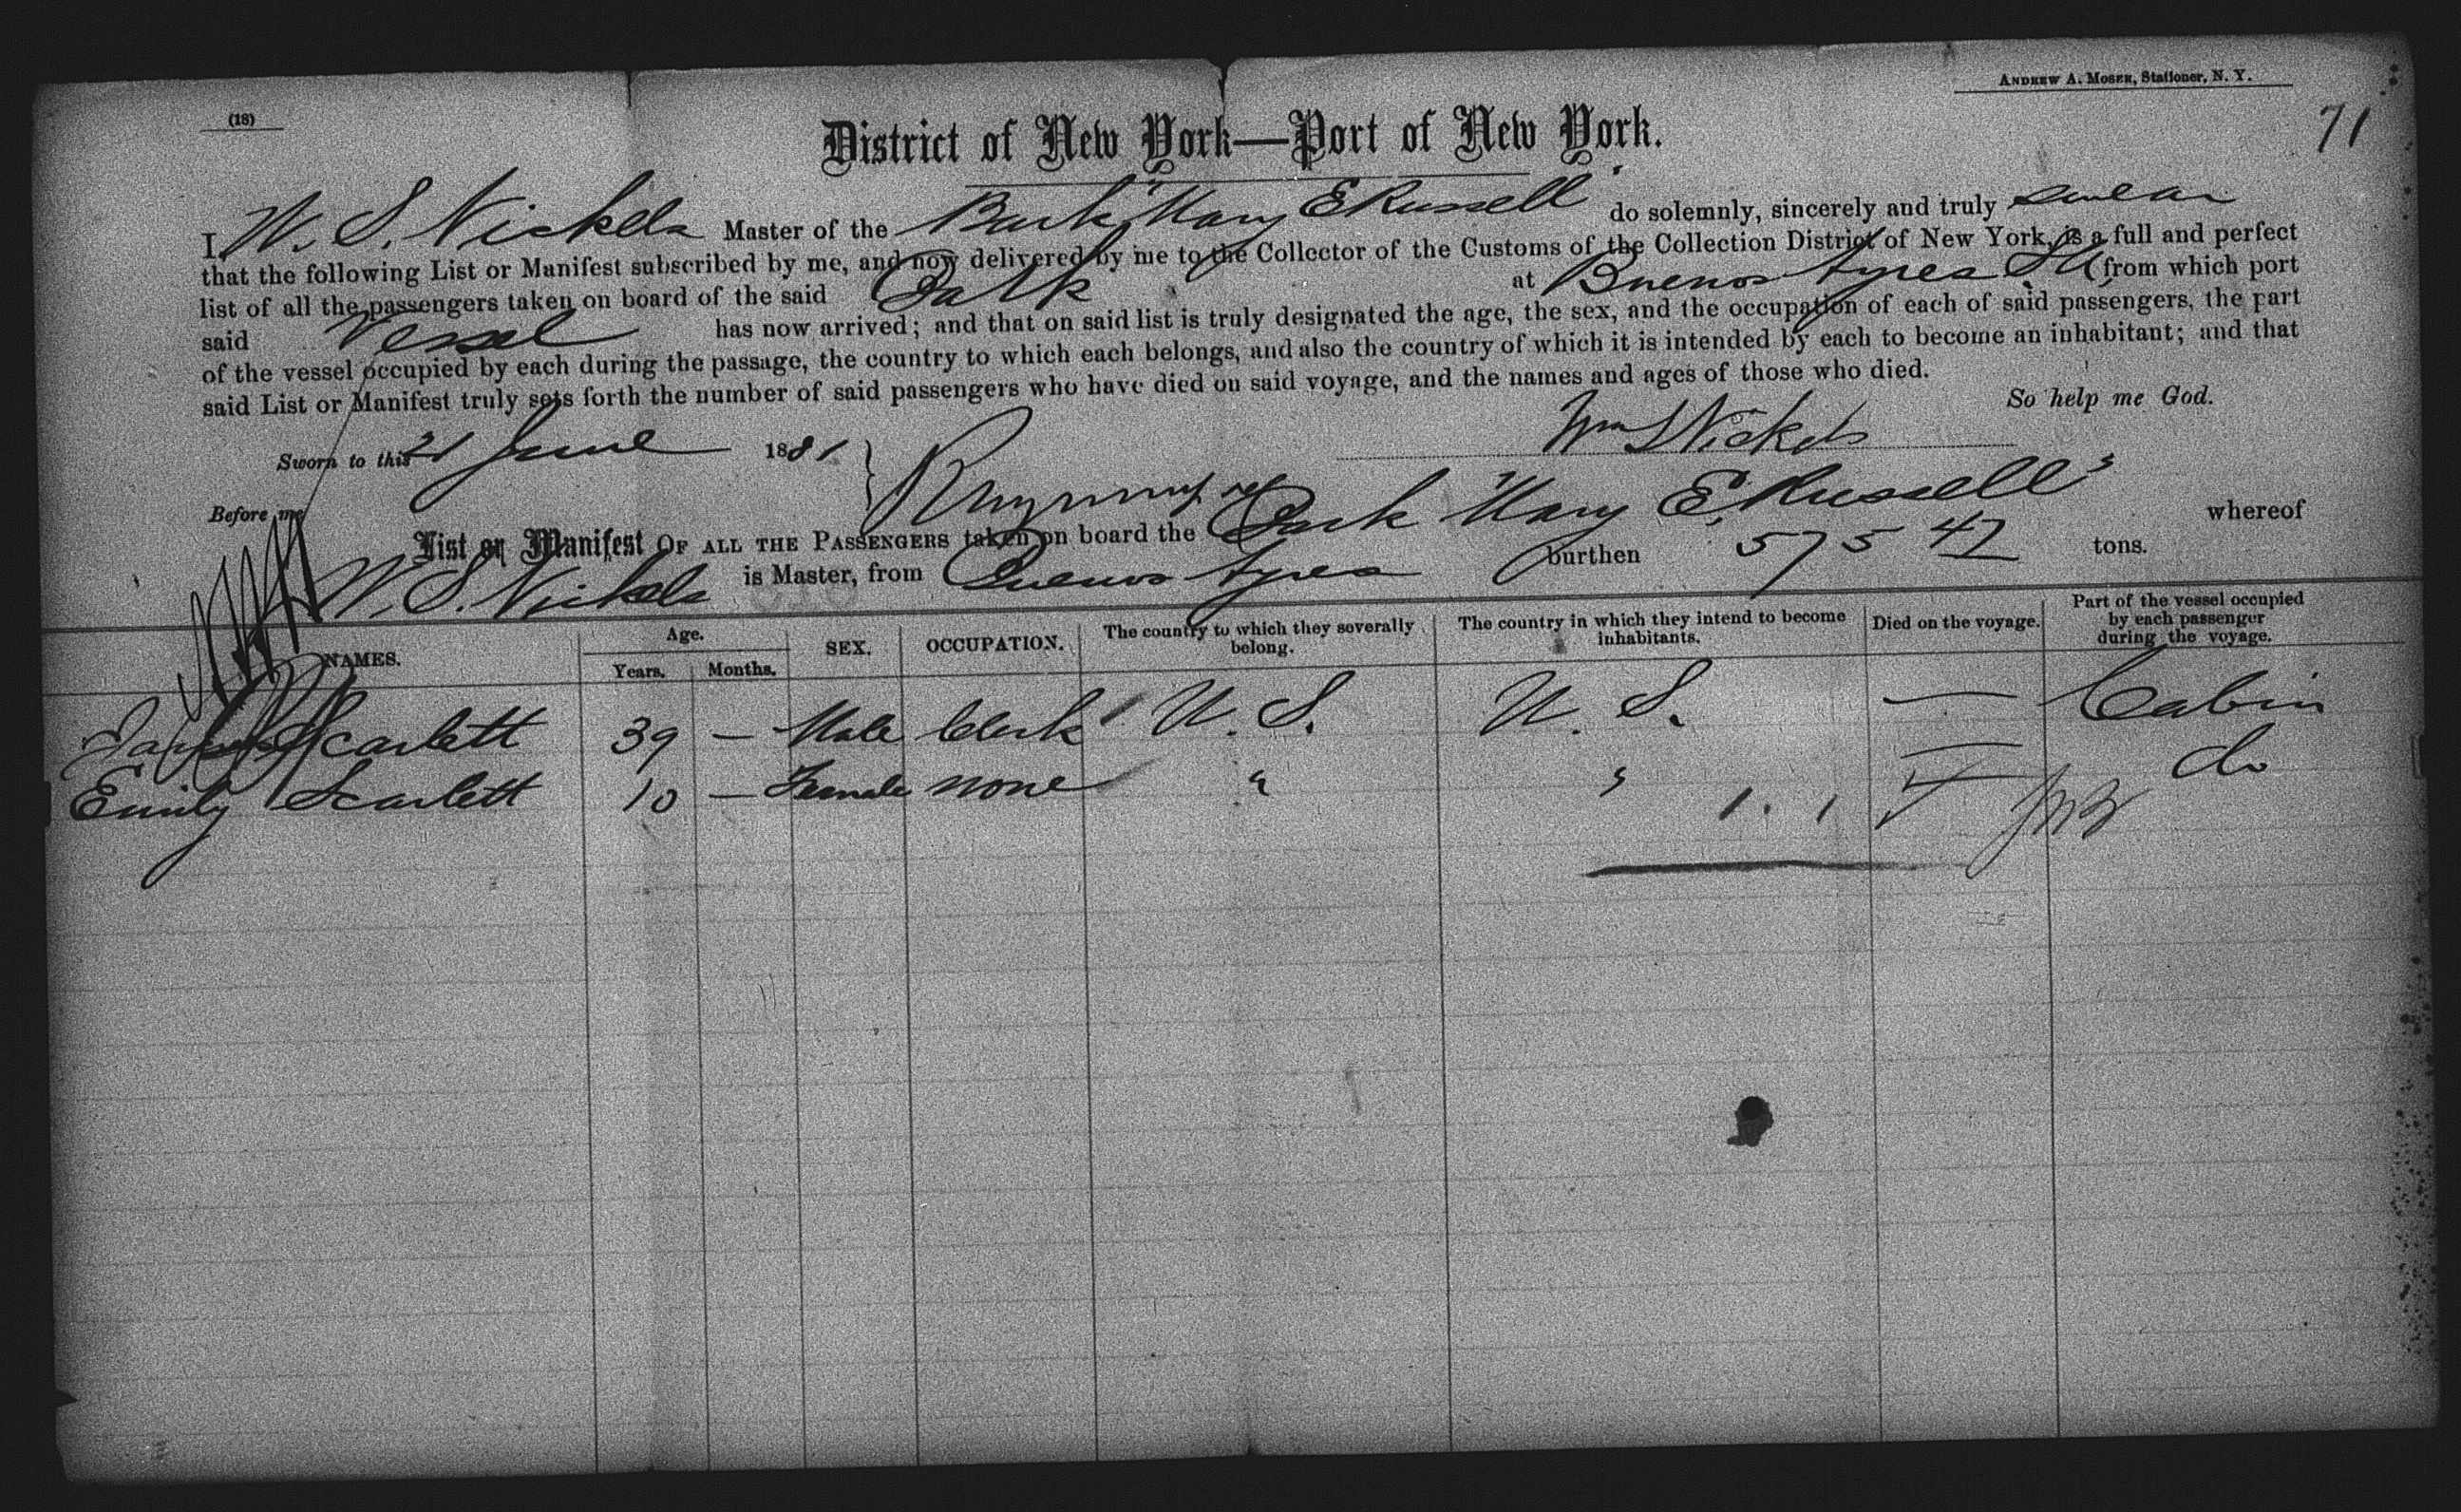 (18)
ANDREW A. MOSER, Stationer, N. Y.
71
District of New York—Port of New York.
I, W. S. Nickels Master of the Bark "Mary E Russell" do solemnly, sincerely and truly swear
that the following List or Manifest subscribed by me, and now delivered by me to the Collector of the Customs of the Collection District of New York, is a full and perfect
list of all the passengers taken on board of the said Bark at Buenos Ayres S A from which port
said Vessel has now arrived; and that on said list is truly designated the age, the sex, and the occupation of each of said passengers, the part
of the vessel occupied by each during the passage, the country to which each belongs, and also the country of which it is intended by each to become an inhabitant; and that
said List or Manifest truly sets forth the number of said passengers who have died on said voyage, and the names and ages of those who died.
So help me God.
Sworn to this 21 June 1881 Wm S Nickels
Before me
List or Manifest OF ALL THE PASSENGERS taken on board the Bark "Mary E. Russell" whereof
W. S. Nickels is Master, from Buenos Ayres burthen 575 47 tons.
NAMES. Age. Years. Months. SEX. OCCUPATION. The country to which they severally belong. The country in which they intend to become inhabitants. Died on the voyage. Part of the vessel occupied by each passenger during the voyage.
Scarlett 39 — Male Clerk U. S. U. S. — Cabin
Emily Scarlett 10 — Female none " " — do
1. 1